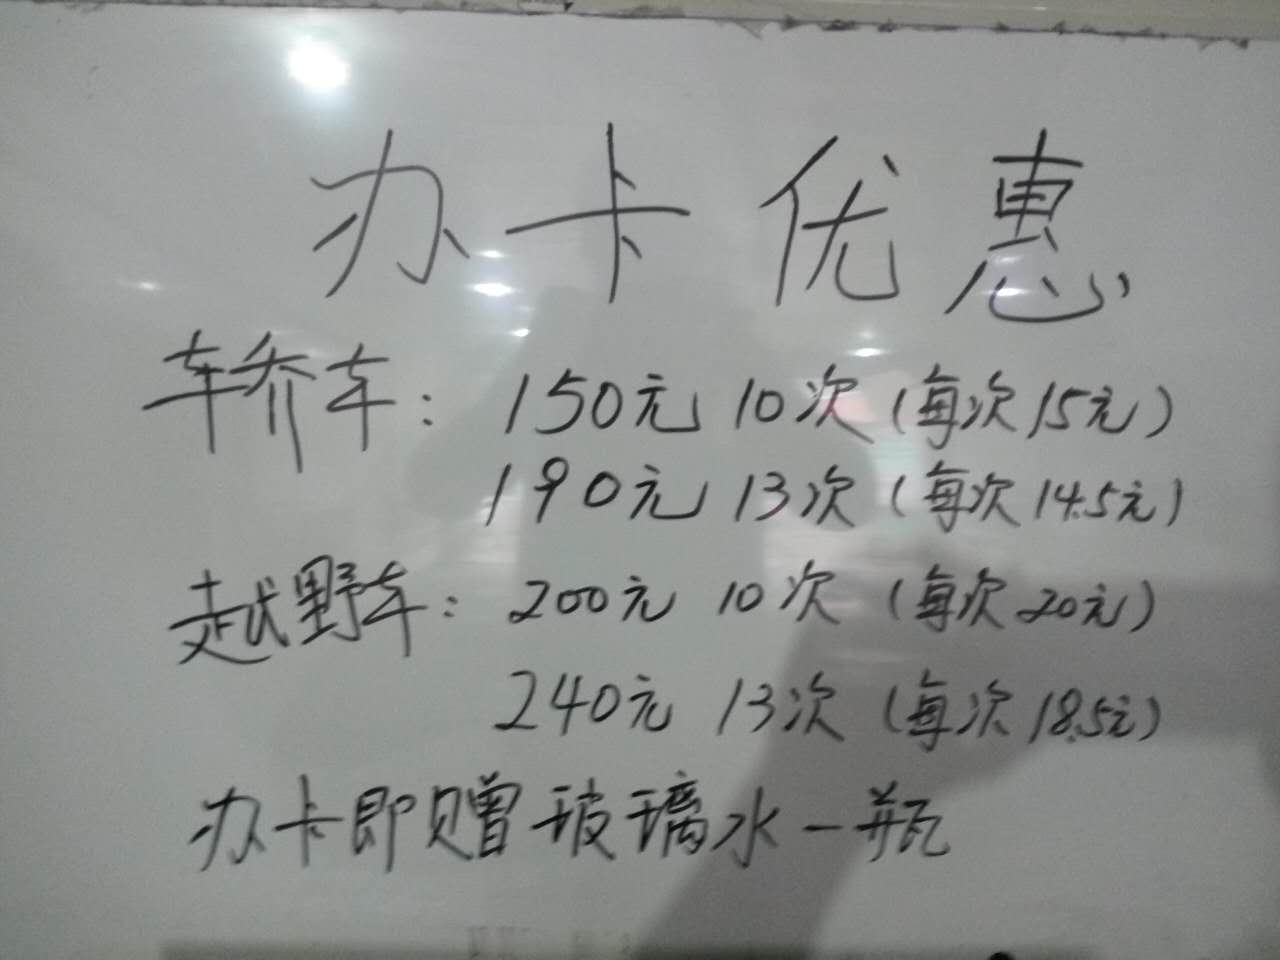 办卡优惠
轿车：150元 10次（每次15元）
190元 13次（每次14.5元）
越野车：200元 10次（每次20元）
240元 13次（每次18.5元）
办卡即赠玻璃水一瓶